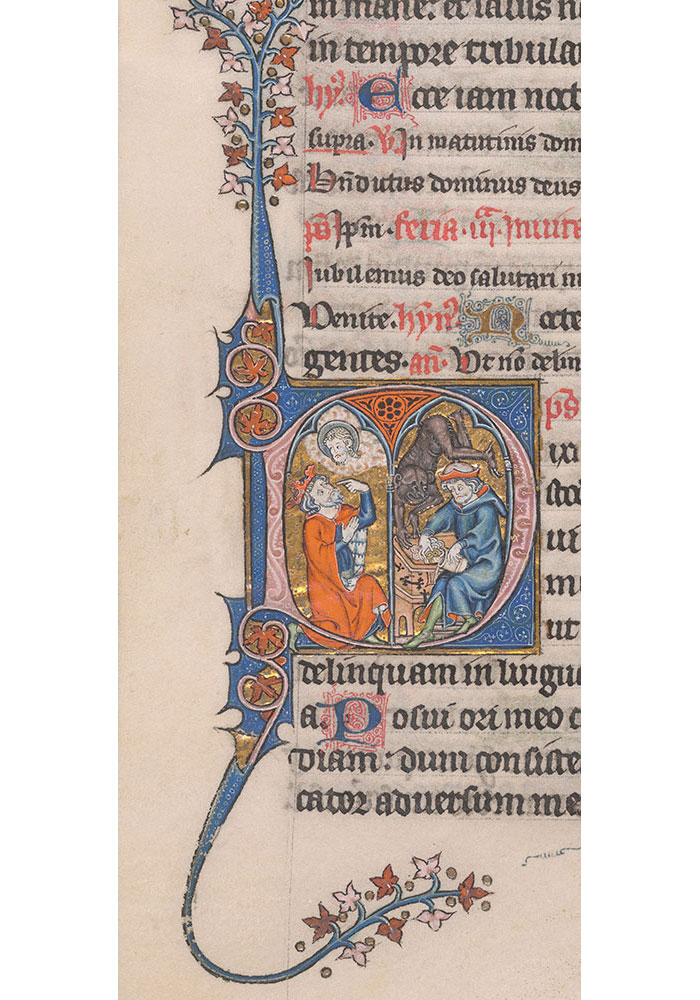 in mane: et salus n
in tempore tribula
hỹ. Ecce iam noct
supra. V̾ In matutinis dom
Bñdictus dominus deus
ps̄ Ip̄m. feria. iii. Inuita
Iubilemus deo salutari n
Venite. hỹn̾. Nocte
gentes. añ. Vt nō delin
ps̄
D ixi
cus
ui
m
ut
delinquam in lingu
a. Posui ori meo c
diam: dum consiste
cator aduersum me